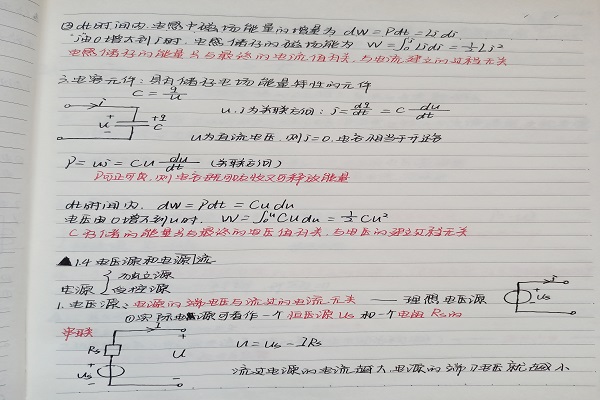 ② dt时间内,电感中磁场能量的增量为 dW=Pdt=Lidi,
i由0增大到i时,电感储存的磁场能为 W=∫₀ⁱLidi=½Li²
电感储存的能量只与最终的电流值有关,与电流建立的过程无关
3.电容元件:具有储存电场能量特性的元件
C=q/u
i
u,i为关联方向:i=dq/dt=C du/dt
+ u -
+q
C
u为直流电压,则i=0,电容相当于开路
P=ui=Cu du/dt (关联方向)
P可正可负,则电容既可吸收又可释放能量
dt时间内, dW=Pdt=Cudu
电压由0增大到u时, W=∫₀ᵘCudu=½Cu²
C存储的能量只与最终的电压值有关,与电压的建立过程无关
▲1.4 电压源和电源
电源 { 独立源
受控源
1.电压源:电源的端电压与流过的电流无关 —— 理想电压源
i
+ Us -
①实际电源可看作一个恒压源Us和一个电阻Rs的
串联
i
+
Rs
u
u=us-IRs
+
Us
-
流过电源的电流越大,电源的端电压就越小